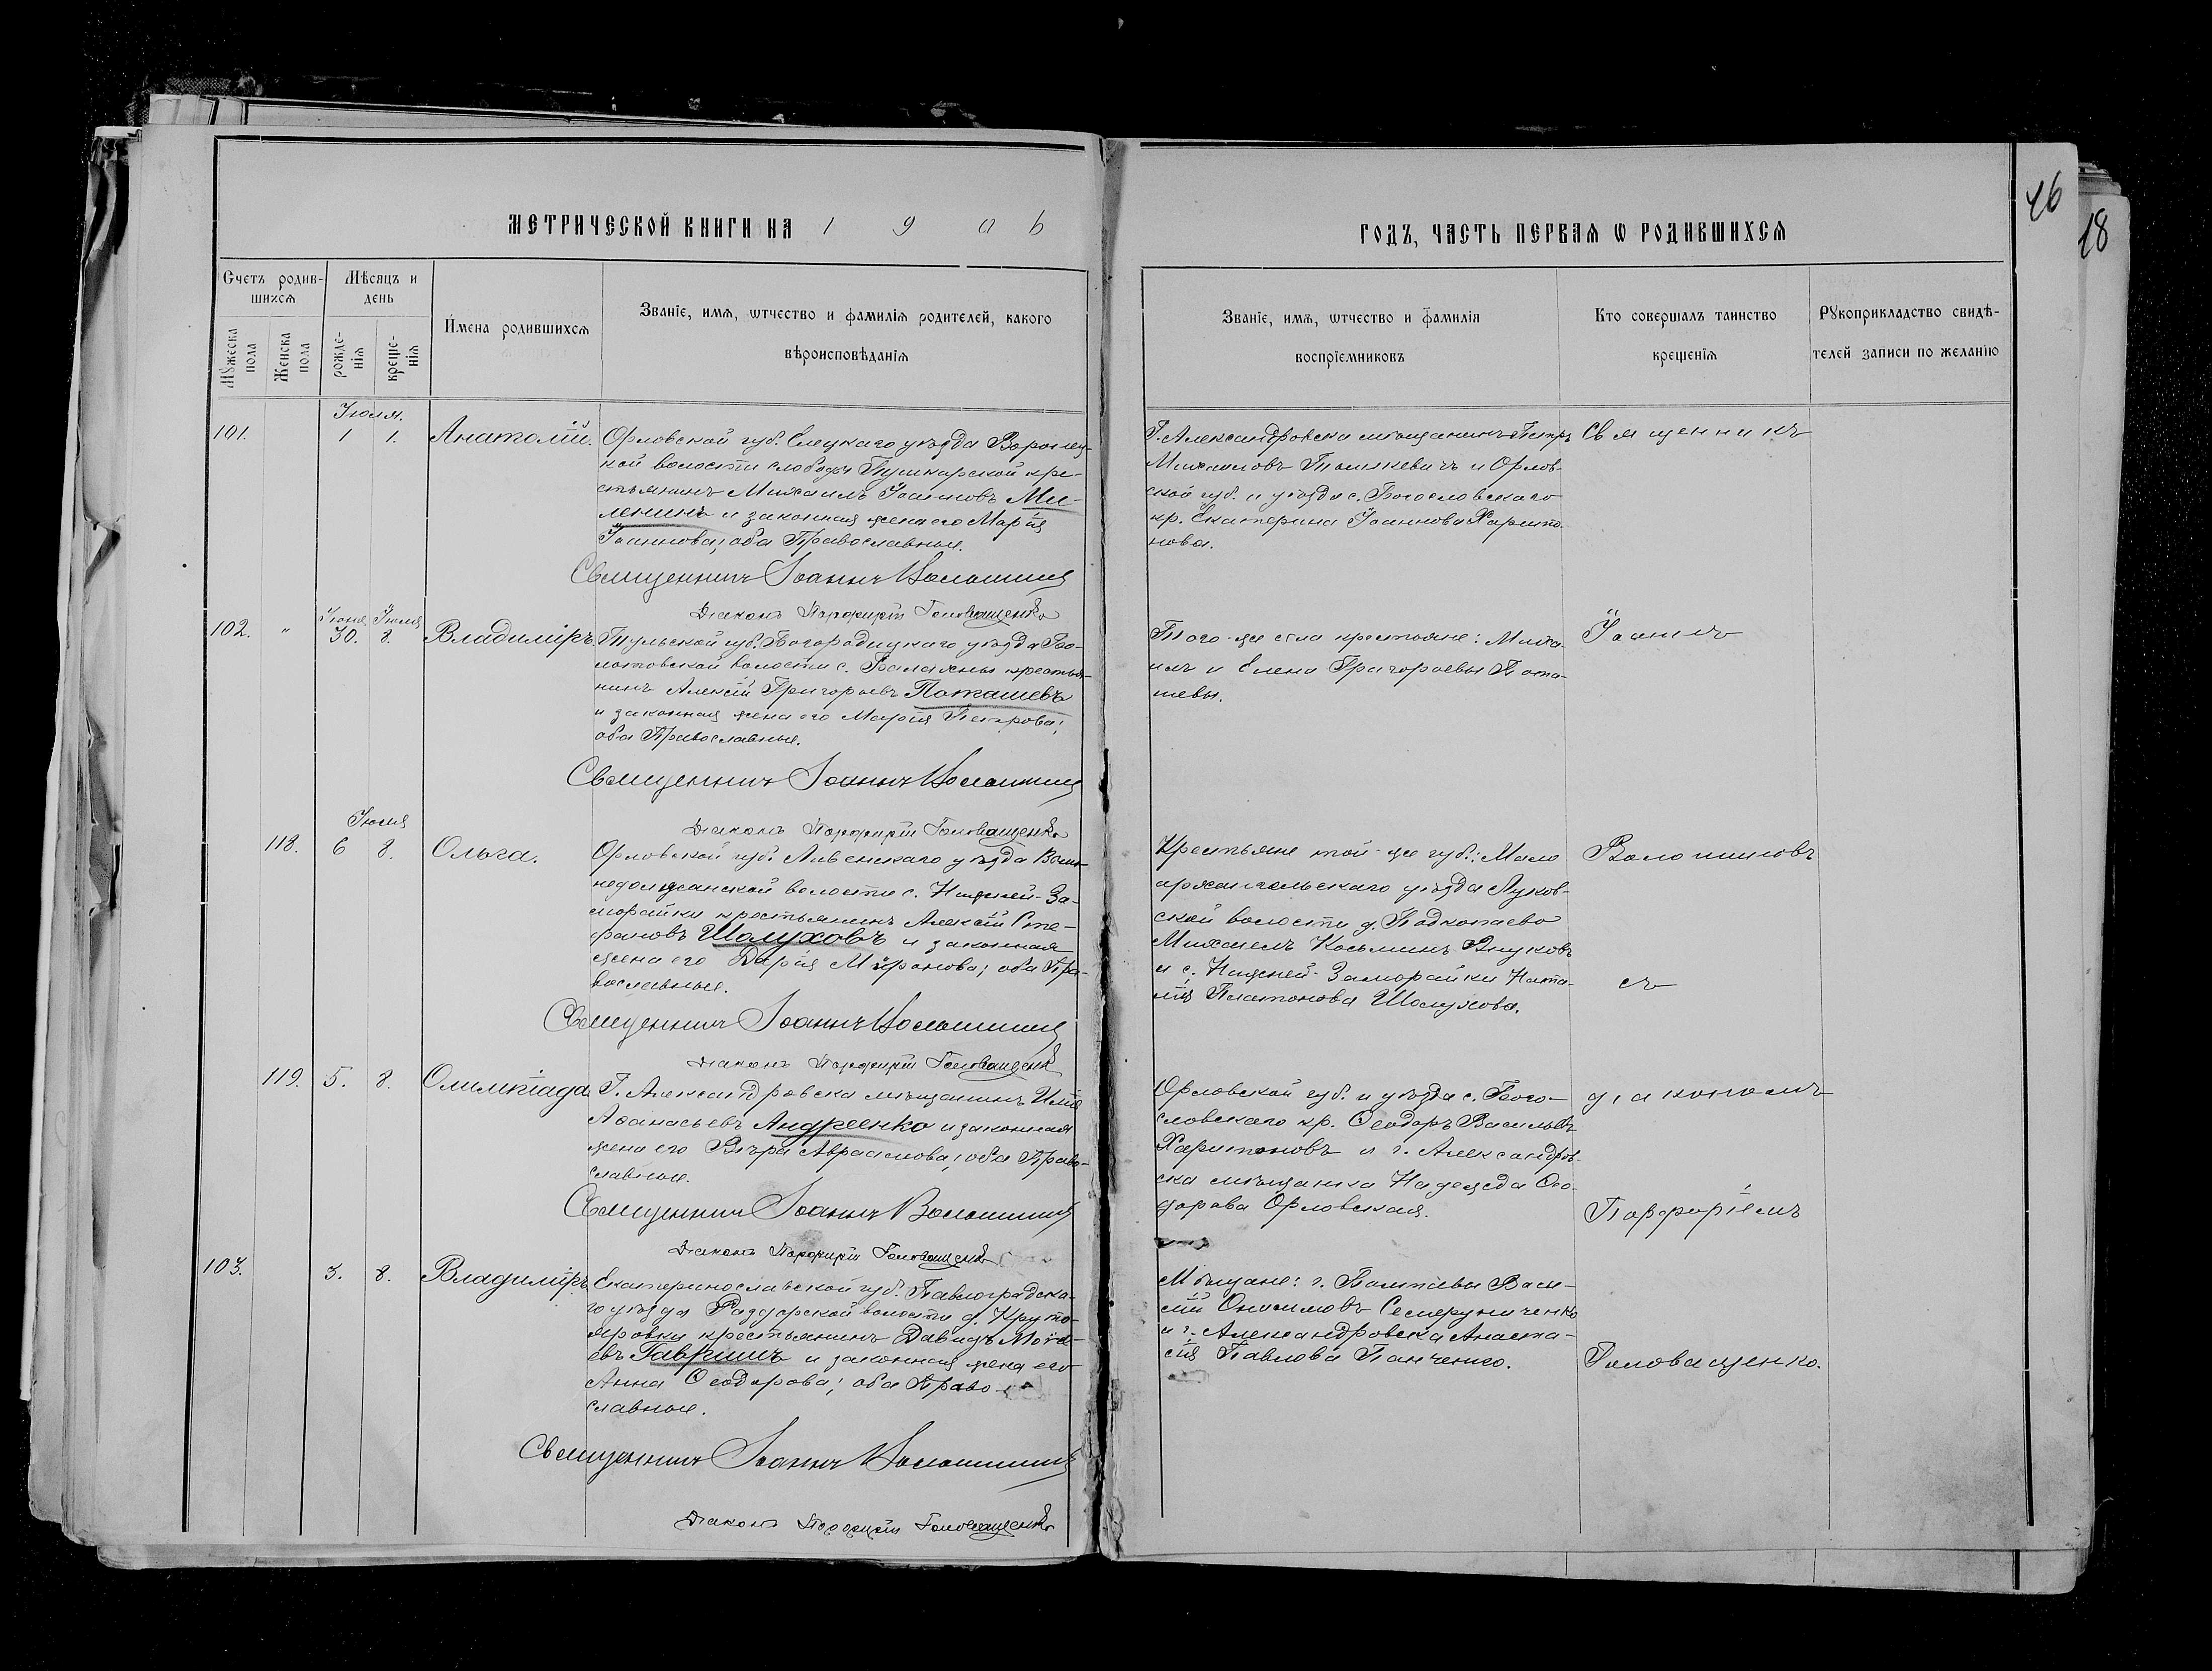 46
18
МЕТРИЧЕСКОЙ КНИГИ НА 1 9 0 6
ГОДЪ, ЧАСТЬ ПЕРВАЯ Ѡ РОДИВШИХСЯ
Счетъ родив-
шихся
Мѣсяцъ и
день
Мужеска
пола
Женска
пола
рожде-
нія
креще-
нія
Имена родившихся
Званіе, имя, ѡтчество и фамилія родителей, какого
вѣроисповѣданія
Званіе, имя, ѡтчество и фамилія
воспріемниковъ
Кто совершалъ таинство
крещенія
Рукоприкладство свидѣ-
телей записи по желанію
Іюля.
101. 1 1. Анатолій.
Орловской губ. Елецкаго уѣзда Воронец-
кой волости слободы Пушкарской кре-
стьянинъ Михаилъ Іоанновъ Ми-
ленинъ и законная жена его Марія
Іоаннова; оба Православные.
Священникъ Іоаннъ Волошиновъ
Діаконъ Порфирій Головащенко
Г. Александровска мѣщанинъ Петръ
Михаиловъ Томкевичъ и Орлов-
ской губ. и уѣзда с. Богословскаго
кр. Екатерина Іоаннова Харито-
нова.
Священникъ
Іюня Іюля
102. " 30. 8. Владиміръ.
Тульской губ. Богородицкаго уѣзда
лотовской волости с. крестья-
нинъ Алексій Григорьевъ Поташевъ
и законная жена его Марія Петрова;
оба Православные.
Священникъ Іоаннъ Волошиновъ
Діаконъ Порфирій Головащенко
Того-же села крестьяне: Миха-
илъ и Елена Григорьевы Пота-
шевы.
Іоаннъ
Іюля
118. 6 8. Ольга.
Орловской губ. Ливенскаго уѣзда
недолжанской волости с. Нижней-За-
морайки крестьянинъ Алексій Сте-
фановъ Шолуховъ и законная
жена его Дарія Миронова; оба Пра-
вославные.
Священникъ Іоаннъ Волошиновъ
Діаконъ Порфирій Головащенко
Крестьяне той-же губ.: Мало
архангельскаго уѣзда Луков-
ской волости д. Подкопаево
Михаилъ Косьминъ Внуковъ
и с. Нижней-Заморайки Ната-
лія Платонова Шолухова.
Волошиновъ
съ
119. 5. 8. Олимпіада
Г. Александровска мѣщанинъ Илія
Аѳанасьевъ Андреенко и законная
жена его Вѣра Авраамова; оба Право-
славные.
Священникъ Іоаннъ Волошиновъ
Діаконъ Порфирій Головащенко
Орловской губ. и уѣзда с. Бого-
словскаго кр. Ѳеодоръ Васильевъ
Харитоновъ и г. Александров-
ска мѣщанка Надежда Ѳео-
дорова Орловская.
діакономъ
Порфиріемъ
103. 3. 8. Владиміръ
Екатеринославской губ. Павлоградска-
го уѣзда Раздорской волости д. Круто-
яровки крестьянинъ Давидъ Моѵсе-
евъ Гавришъ и законная жена его
Анна Ѳеодорова; оба Право-
славные.
Священникъ Іоаннъ Волошиновъ
Діаконъ Порфирій Головащенко
Мѣщане: г. Полтавы Васи-
лій Онисимовъ Семеруниченко
и г. Александровска Анаста-
сія Павлова Панченко.
Головащенко.